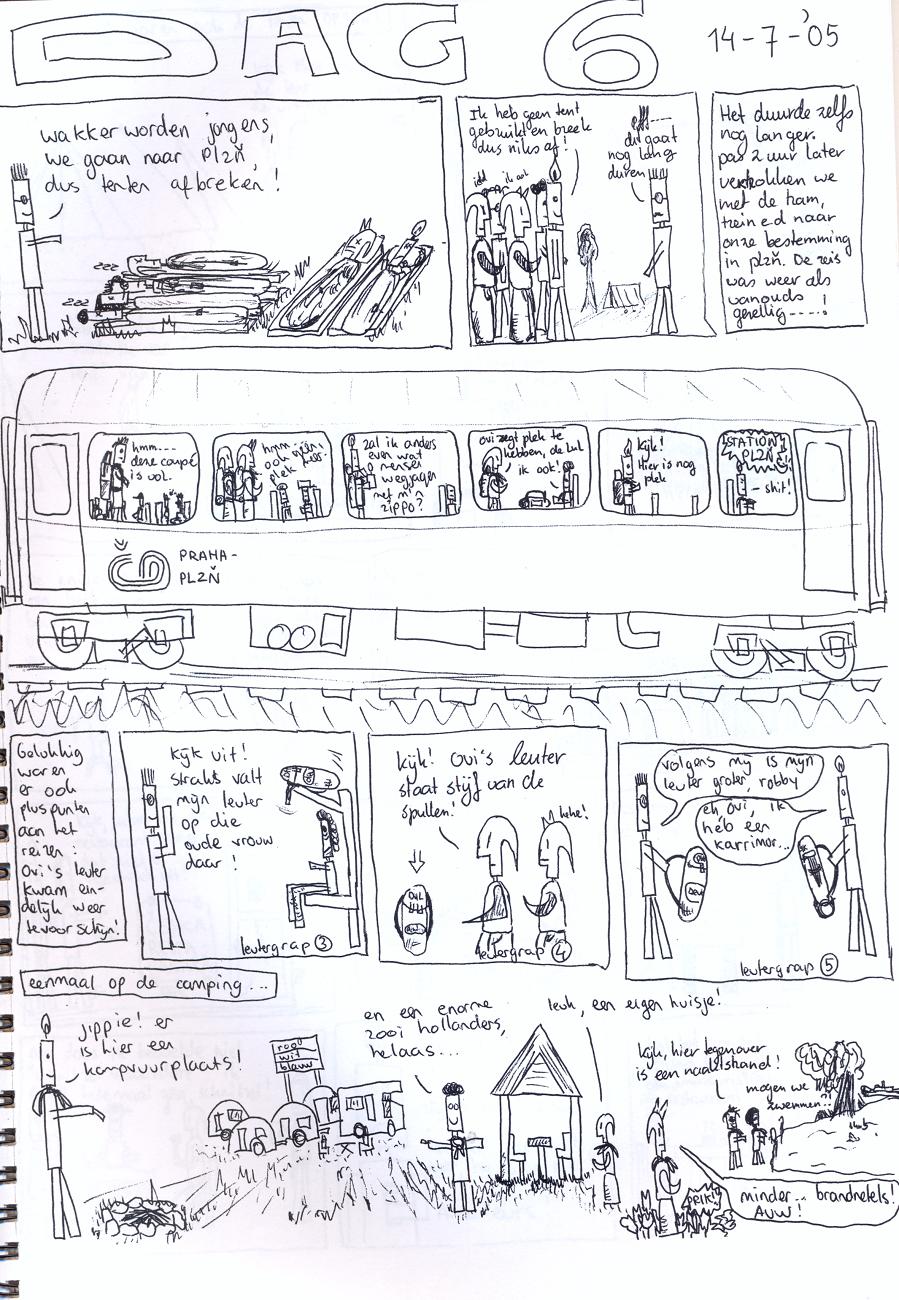 DAG 6
14-7-'05
wakker worden jongens,
we gaan naar Plzň,
dus tenten afbreken!
zzz
zzz
Ik heb geen tent
gebruikt en breek
dus niks af!
ik ook
pff----
dit gaat
nog lang
duren
Het duurde zelfs
nog langer.
pas 2 uur later
vertrokken we
met de tram,
trein e.d naar
onze bestemming
in plzň. De reis
was weer als
vanouds
gezellig----!
hmm----
deze coupé
is vol.
hmm
ook géén
plek
zal ik anders
even wat
mensen
wegjagen
met m'n
zippo?
ovi zegt plek te
hebben, de lul
ik ook!
kijk!
Hier is nog
plek
STATION
PLZŇ!
- shit!
PRAHA-
PLZŇ
Gelukkig
waren
er ook
pluspunten
aan het
reizen.
Ovi's leuter
kwam ein-
delijk weer
tevoorschijn!
Kijk uit!
straks valt
mijn leuter
op die
oude vrouw
daar!
leutergrap 3
kijk! Ovi's leuter
staat stijf van de
spullen!
hehe!
leutergrap 4
volgens mij is mijn
leuter groter, robby
eh, ovi, ik
heb een
karrimor...
leutergrap 5
eenmaal op de camping...
jippie! er
is hier een
kampvuurplaats!
rood
wit
blauw
en een enorme
zooi hollanders,
helaas...
leuk, een eigen huisje!
kijk, hier tegenover
is een naaktstrand!
mogen we
zwemmen?!
PRIK!
minder... brandnetels!
AUW!